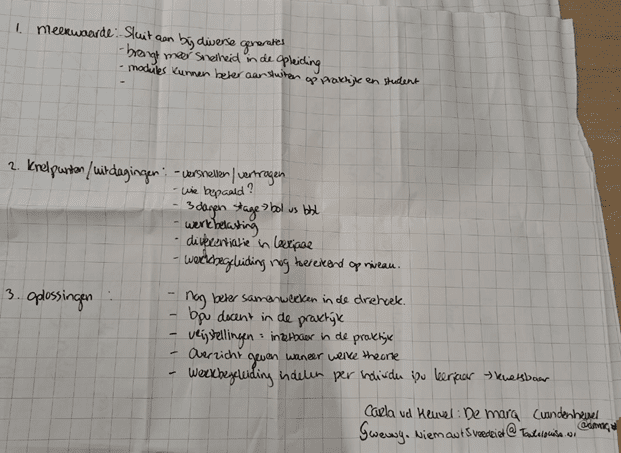 1. meerwaarde: Sluit aan bij diverse generaties
- brengt meer snelheid in de opleiding
- modules kunnen beter aansluiten op praktijk en student
-
2. Knelpunten/uitdagingen: - versnellen/vertragen
- wie bepaald?
- 3 dagen stage → bol vs bbl
- werkbelasting
- differentiatie in leerjaar
- werkbegeleiding nog toereikend op niveau.
3. oplossingen :
- nog beter samenwerken in de driehoek.
- bpv docent in de praktijk
- vrijstellingen = inzetbaar in de praktijk
- Overzicht geven waneer welke theorie
- Werkbegeleiding indelen per individu ipv leerjaar → kwetsbaar
Carla vd Heuvel: De marq cvandenheuvel